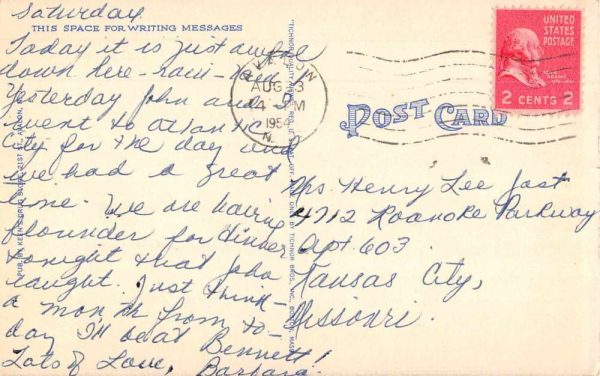 Saturday
THIS SPACE FOR WRITING MESSAGES
Today it is just
down here - rain - rain!
Yesterday John and I
went to Atlantic
City for the day and
we had a great
time. We are having
flounder for dinner
tonight that John
caught. Just think -
a month from to-
day I'll be at Bennett!
Lots of Love, Barbara.
AUG
PM
1954
N. J.
POST CARD
UNITED
STATES
POSTAGE
2 CENTS 2
Mrs. Henry Lee Jost
4712 Roanoke Parkway
Apt. 603
Kansas City,
Missouri.